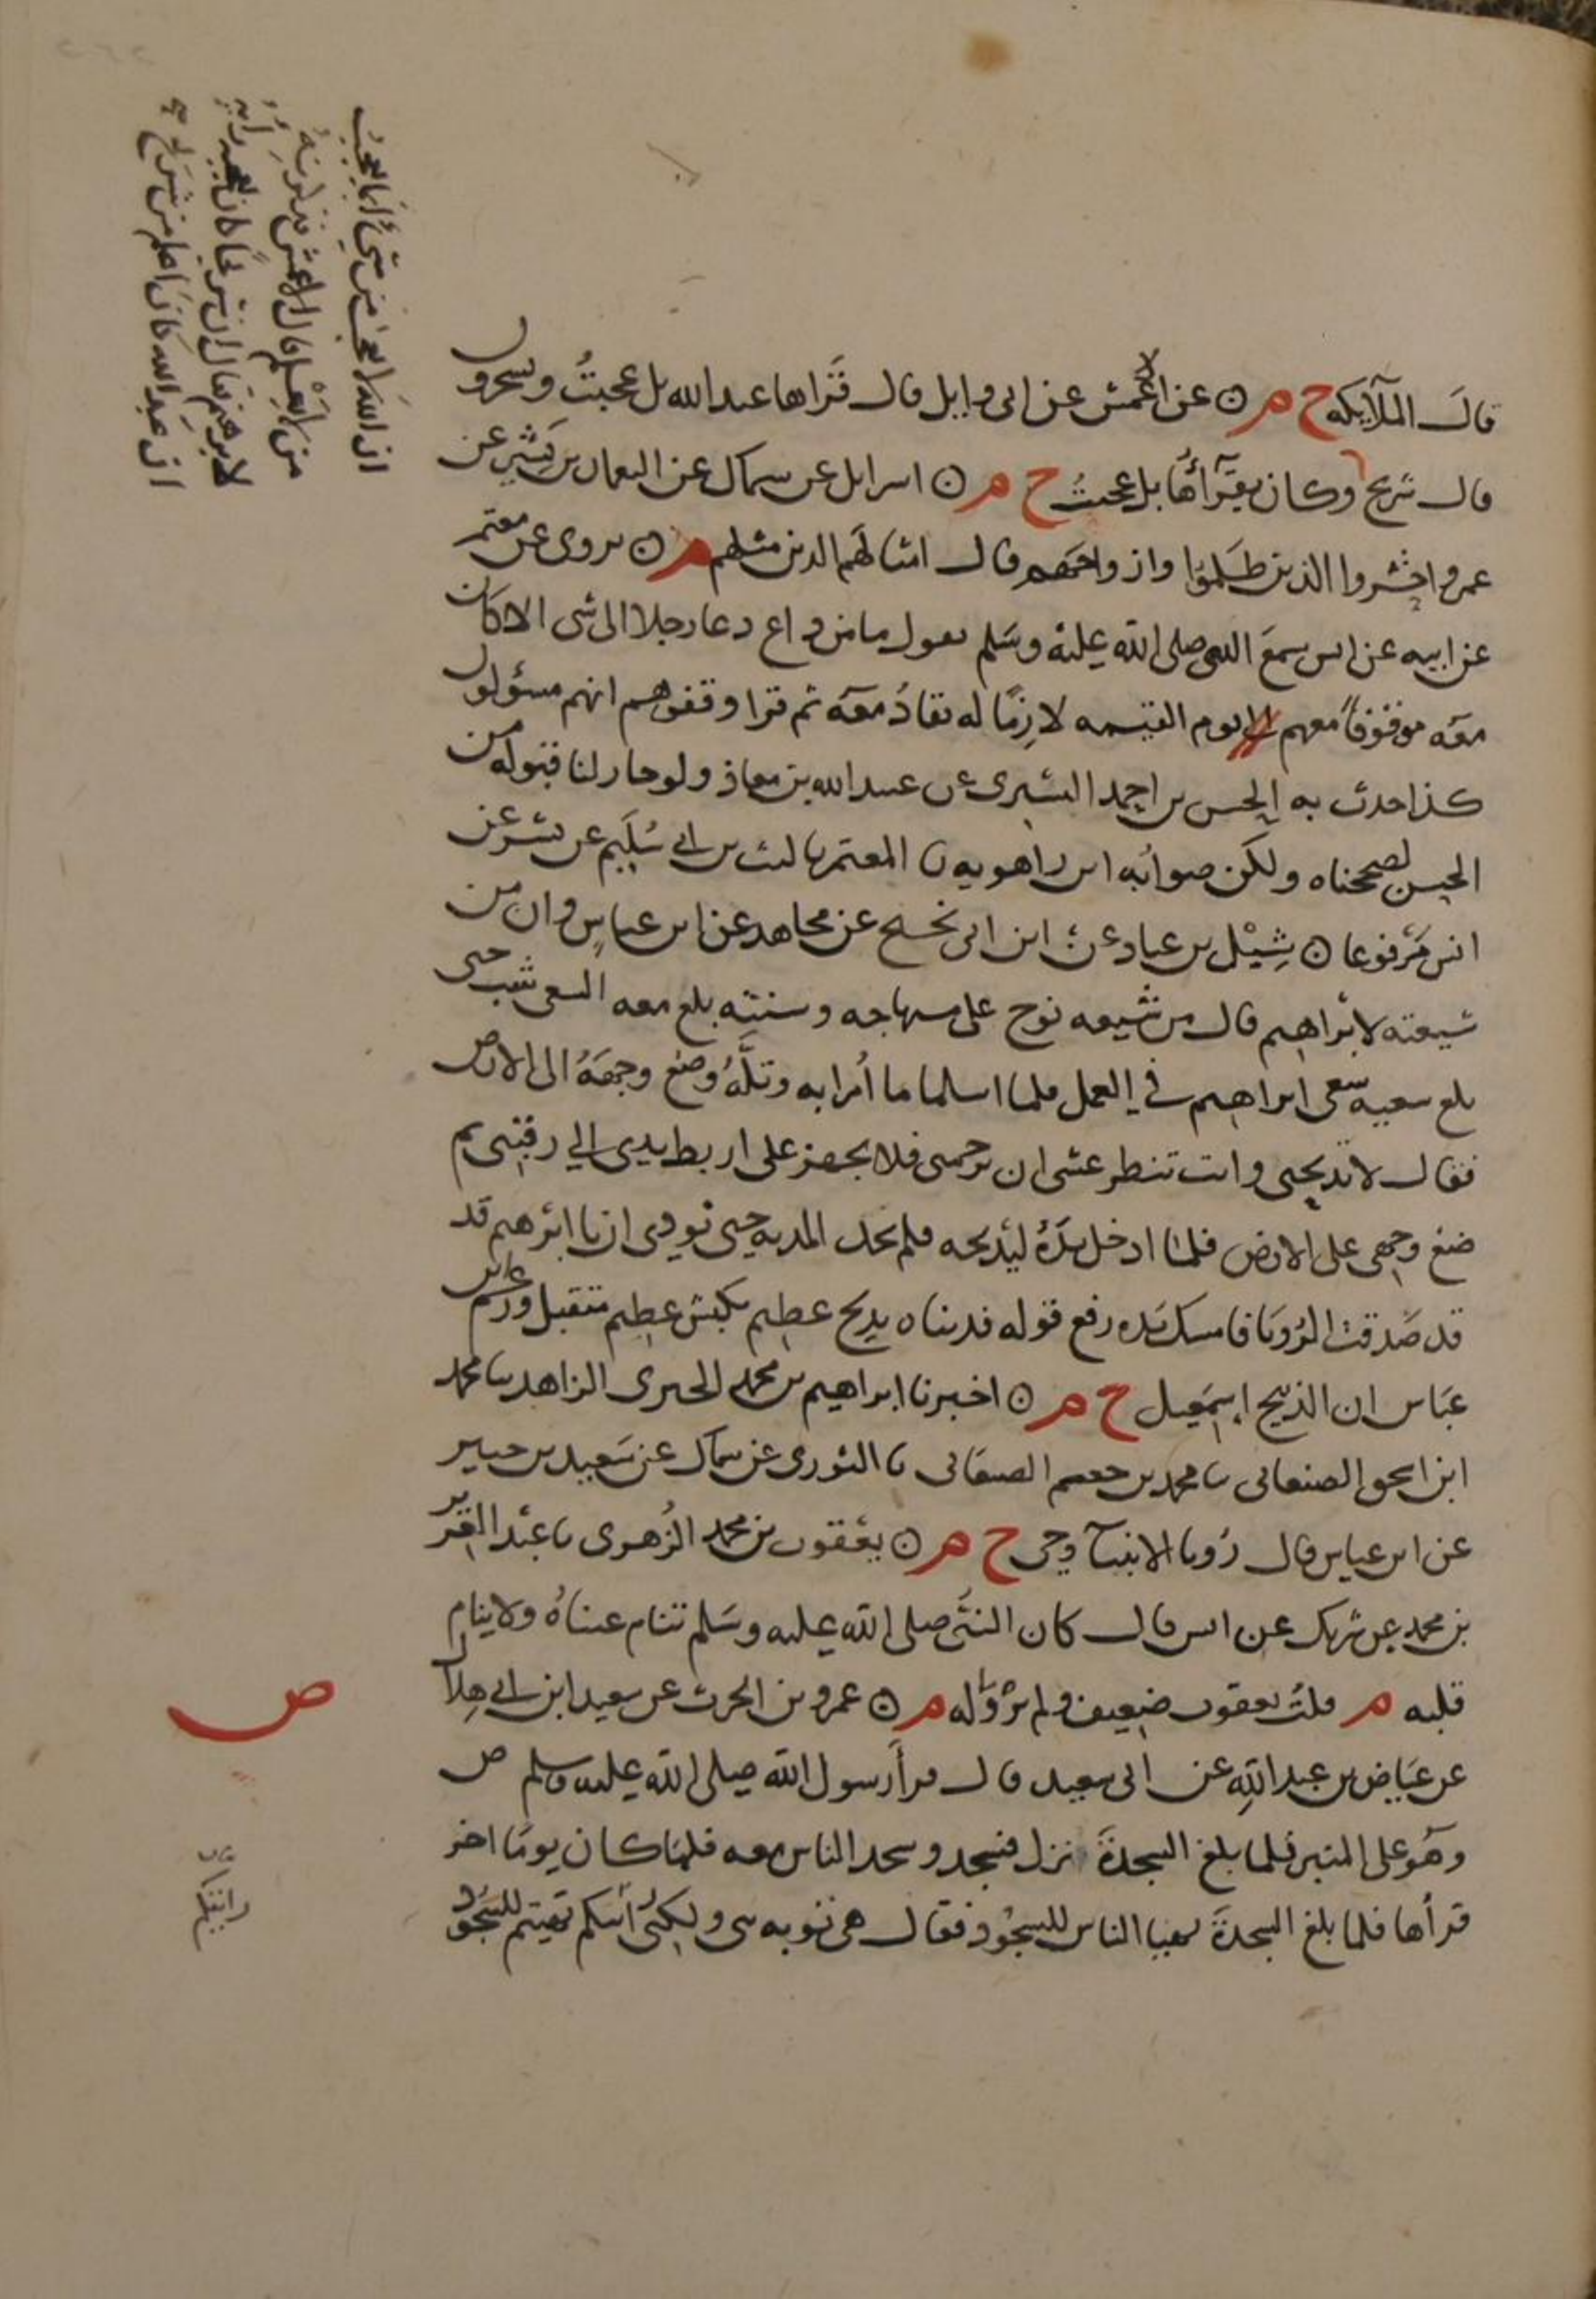 قال الملآيكه خ م ۞ عن الاعمش عن ابى وايل قال قراها عبدالله بل عجبتُ ويسخرون
قال شريح وكان يقرأها بل عجبتَ خ م ۞ اسرايل عن سماك عن النعمان بن بشير عن
عمر واحشروا الذين ظلموا وازواجهم قال امثالهم الذين مثلهم م ۞ يروى عن معتمر
عن ابيه عن انس سمع النبى صلى الله عليه وسلم يقول ما من داع دعا رجلا الى شى الا كان
معه موقوفا معهم يوم القيمه لازما له يقاد معه ثم قرا وقفوهم انهم مسؤلون
كذا حدث به الحسن بن احمد التسترى عن عبيدالله بن معاذ ولو جاز لنا قبوله من
الحسن لصححناه ولكن صوابه ابن راهويه نا المعتمر نا ليث بن ابي سُلَيم عن بشر عن
انس مرفوعا ۞ شِبْل بن عباد عن ابن ابى نجيح عن مجاهد عن ابن عباس وان من
شيعته لابراهيم قال من شيعه نوح على منهاجه وسنته بلغ معه السعى شب حتى
بلغ سعيه سعى ابراهيم في العمل فلما اسلما ما أمرا به وتلَّهُ وضع وجهَهُ الى الارض
فقال لا تذبحنى وانت تنظر عسى ان ترحمنى فلا تجهز على اربط يدى الي رقبتى ثم
ضع وجهى على الارض فلما ادخل يدَهُ ليذبحه فلم تحك المديه حتى نودى ان يا ابرهيم قد
قد صَدقت الرُؤيا فامسك يَده رفع قوله فديناه بذبح عظيم بكبش عظيم متقبل وزعم ابن
عبَاس ان الذبيح اسمَعيل خ م ۞ اخبرنا ابراهيم بن محمد الحيرى الزاهد نا محمد
ابن اسحق الصنعانى نا محمد بن جعشم الصنعانى نا الثورى عن سماك عن سَعيد بن جبير
عن ابن عباس قال رُويا الانبيآ وحى خ م ۞ يعقوب بن محمد الزُهرى نا عبد العزيز
بن محمد عن شريك عن انس قال كان النبى صلى الله عليه وسَلم تنام عيناهُ ولا ينام
قلبه م قلتُ يعقوب ضعيف ولم يرو له م ۞ عمرو بن الحرث عن سعيد ابن ابي هِلال
عن عيَاض بن عبد الله عن ابى سعيد قال قرأ رسول الله صلى الله عليه وسلم ص
وهو على المنبر فلما بلغ السجدَةَ نزل فسجد وسجد الناس معه فلما كان يومًا اخر
قرأها فلما بلغ السجدةَ تهيا الناس للسجُود فقال هى توبه نبى ولكنى رأيتكم تهيئتم للسجُود
ان الله لا يعجبُ من شئ انما يعجبُ
من لا يَعْلم قال الاعمش فذكرتهُ
لابرهيم فقال ان شريحًا كان يعجبه رأيه
ان عبدالله كان اعلم من شريح
ص